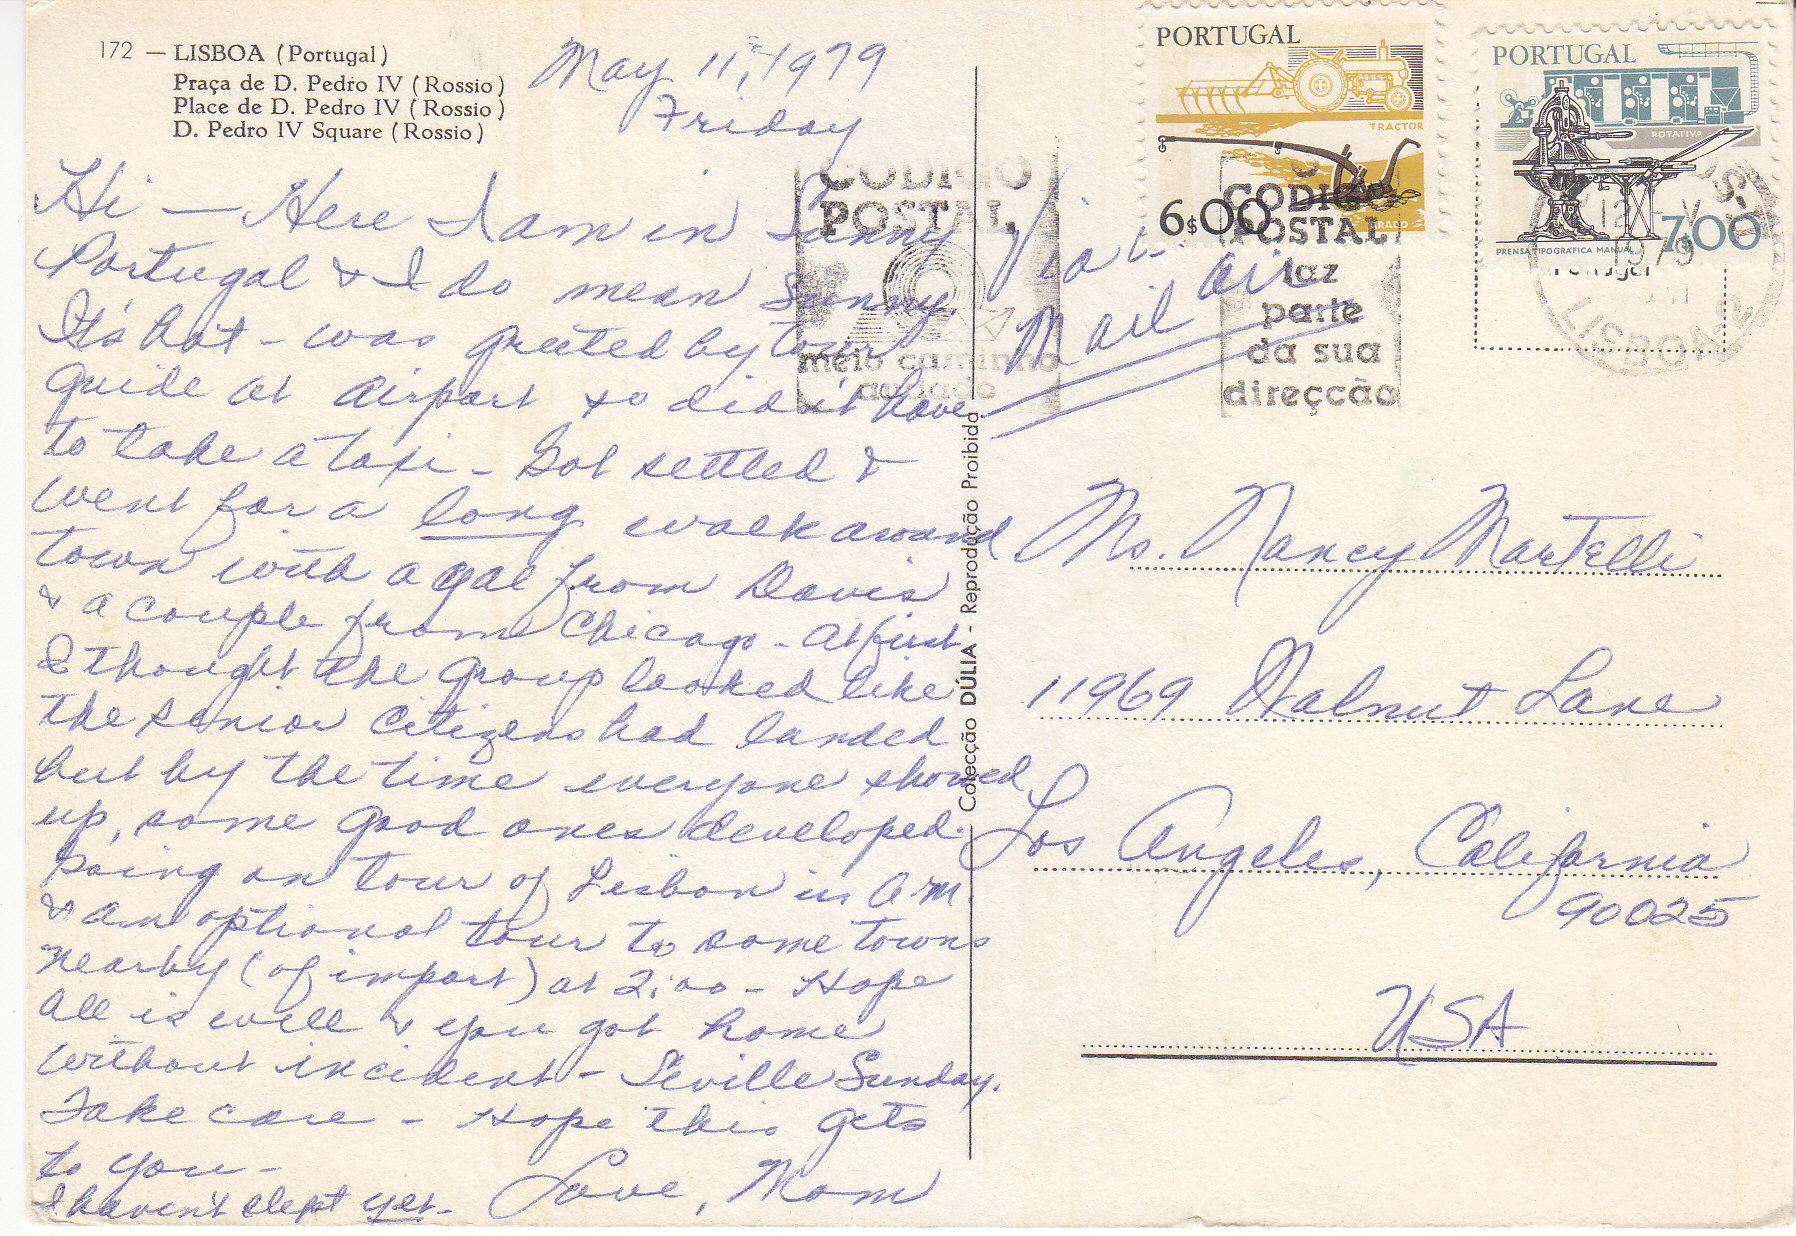 172 — LISBOA (Portugal)
Praça de D. Pedro IV (Rossio)
Place de D. Pedro IV (Rossio)
D. Pedro IV Square (Rossio)
May 11, 1979
Friday
Hi — Here I am in Sunny
Portugal & I do mean Sunny.
It's hot - was greeted by tour
guide at airport so didn't have
to take a taxi - Got settled &
went for a long walk around
town with a gal from Davis
& a couple from Chicago - At first
I thought the group looked like
the senior citizens had landed
but by the time everyone showed
up, some good ones developed.
Going on tour of Lisbon in A.M.
& an optional tour to some towns
nearby (of import) at 2:00 - Hope
all is well & you got home
without incident - Seville Sunday.
Take care - Hope this gets
to you -
Love, Mom
I haven't slept yet -
Colecção DÚLIA - Reprodução Proibida
Via:
Air
Mail
PORTUGAL
TRACTOR
6$00
ARADO
PORTUGAL
ROTATIVA
PRENSA TIPOGRÁFICA MANUAL
7$00
CODIGO
POSTAL
meio caminho
andado
CODIGO
POSTAL
faz
parte
da sua
direcção
12 V
1979
Portugal
LISBOA
Ms. Nancy Martelli
11969 Walnut Lane
Los Angeles, California
90025
USA